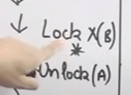 Lock X(B)
*
Unlock(A)